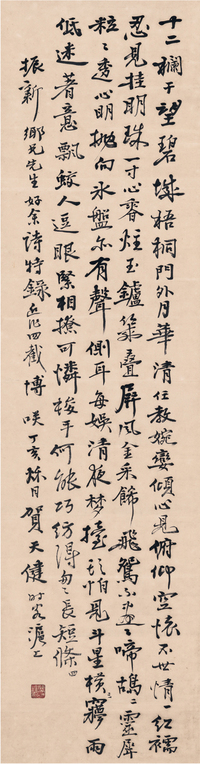 十二欄干望碧城梧桐門外月華清任教婉孌傾心見俯仰空懷不世情一紅襦
忍見挂明珠一寸心香炷玉鑪幾疊屏風金采飾飛鴛不畫畫啼鴣二靈犀
粒粒透心明拋向冰盤亦有聲側耳每娛清夜夢擡頭怕見斗星橫三雨
低迷著意飄鮫人逗眼緊相撩可憐梭手何能巧紡得匆匆長短條四
振新鄉兄先生好余詩特錄近作四截博咲丁亥秋日賀天健時客滬上